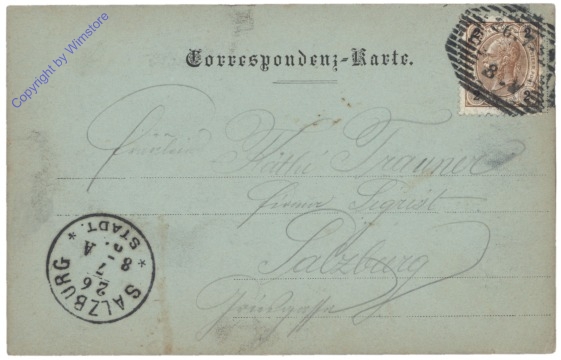 Copyright by Wimstore
Correspondenz-Karte.
Fräulein Käthi Trauner
Firma Sigrist
Salzburg
SALZBURG
26
7
8 A
* STADT. *